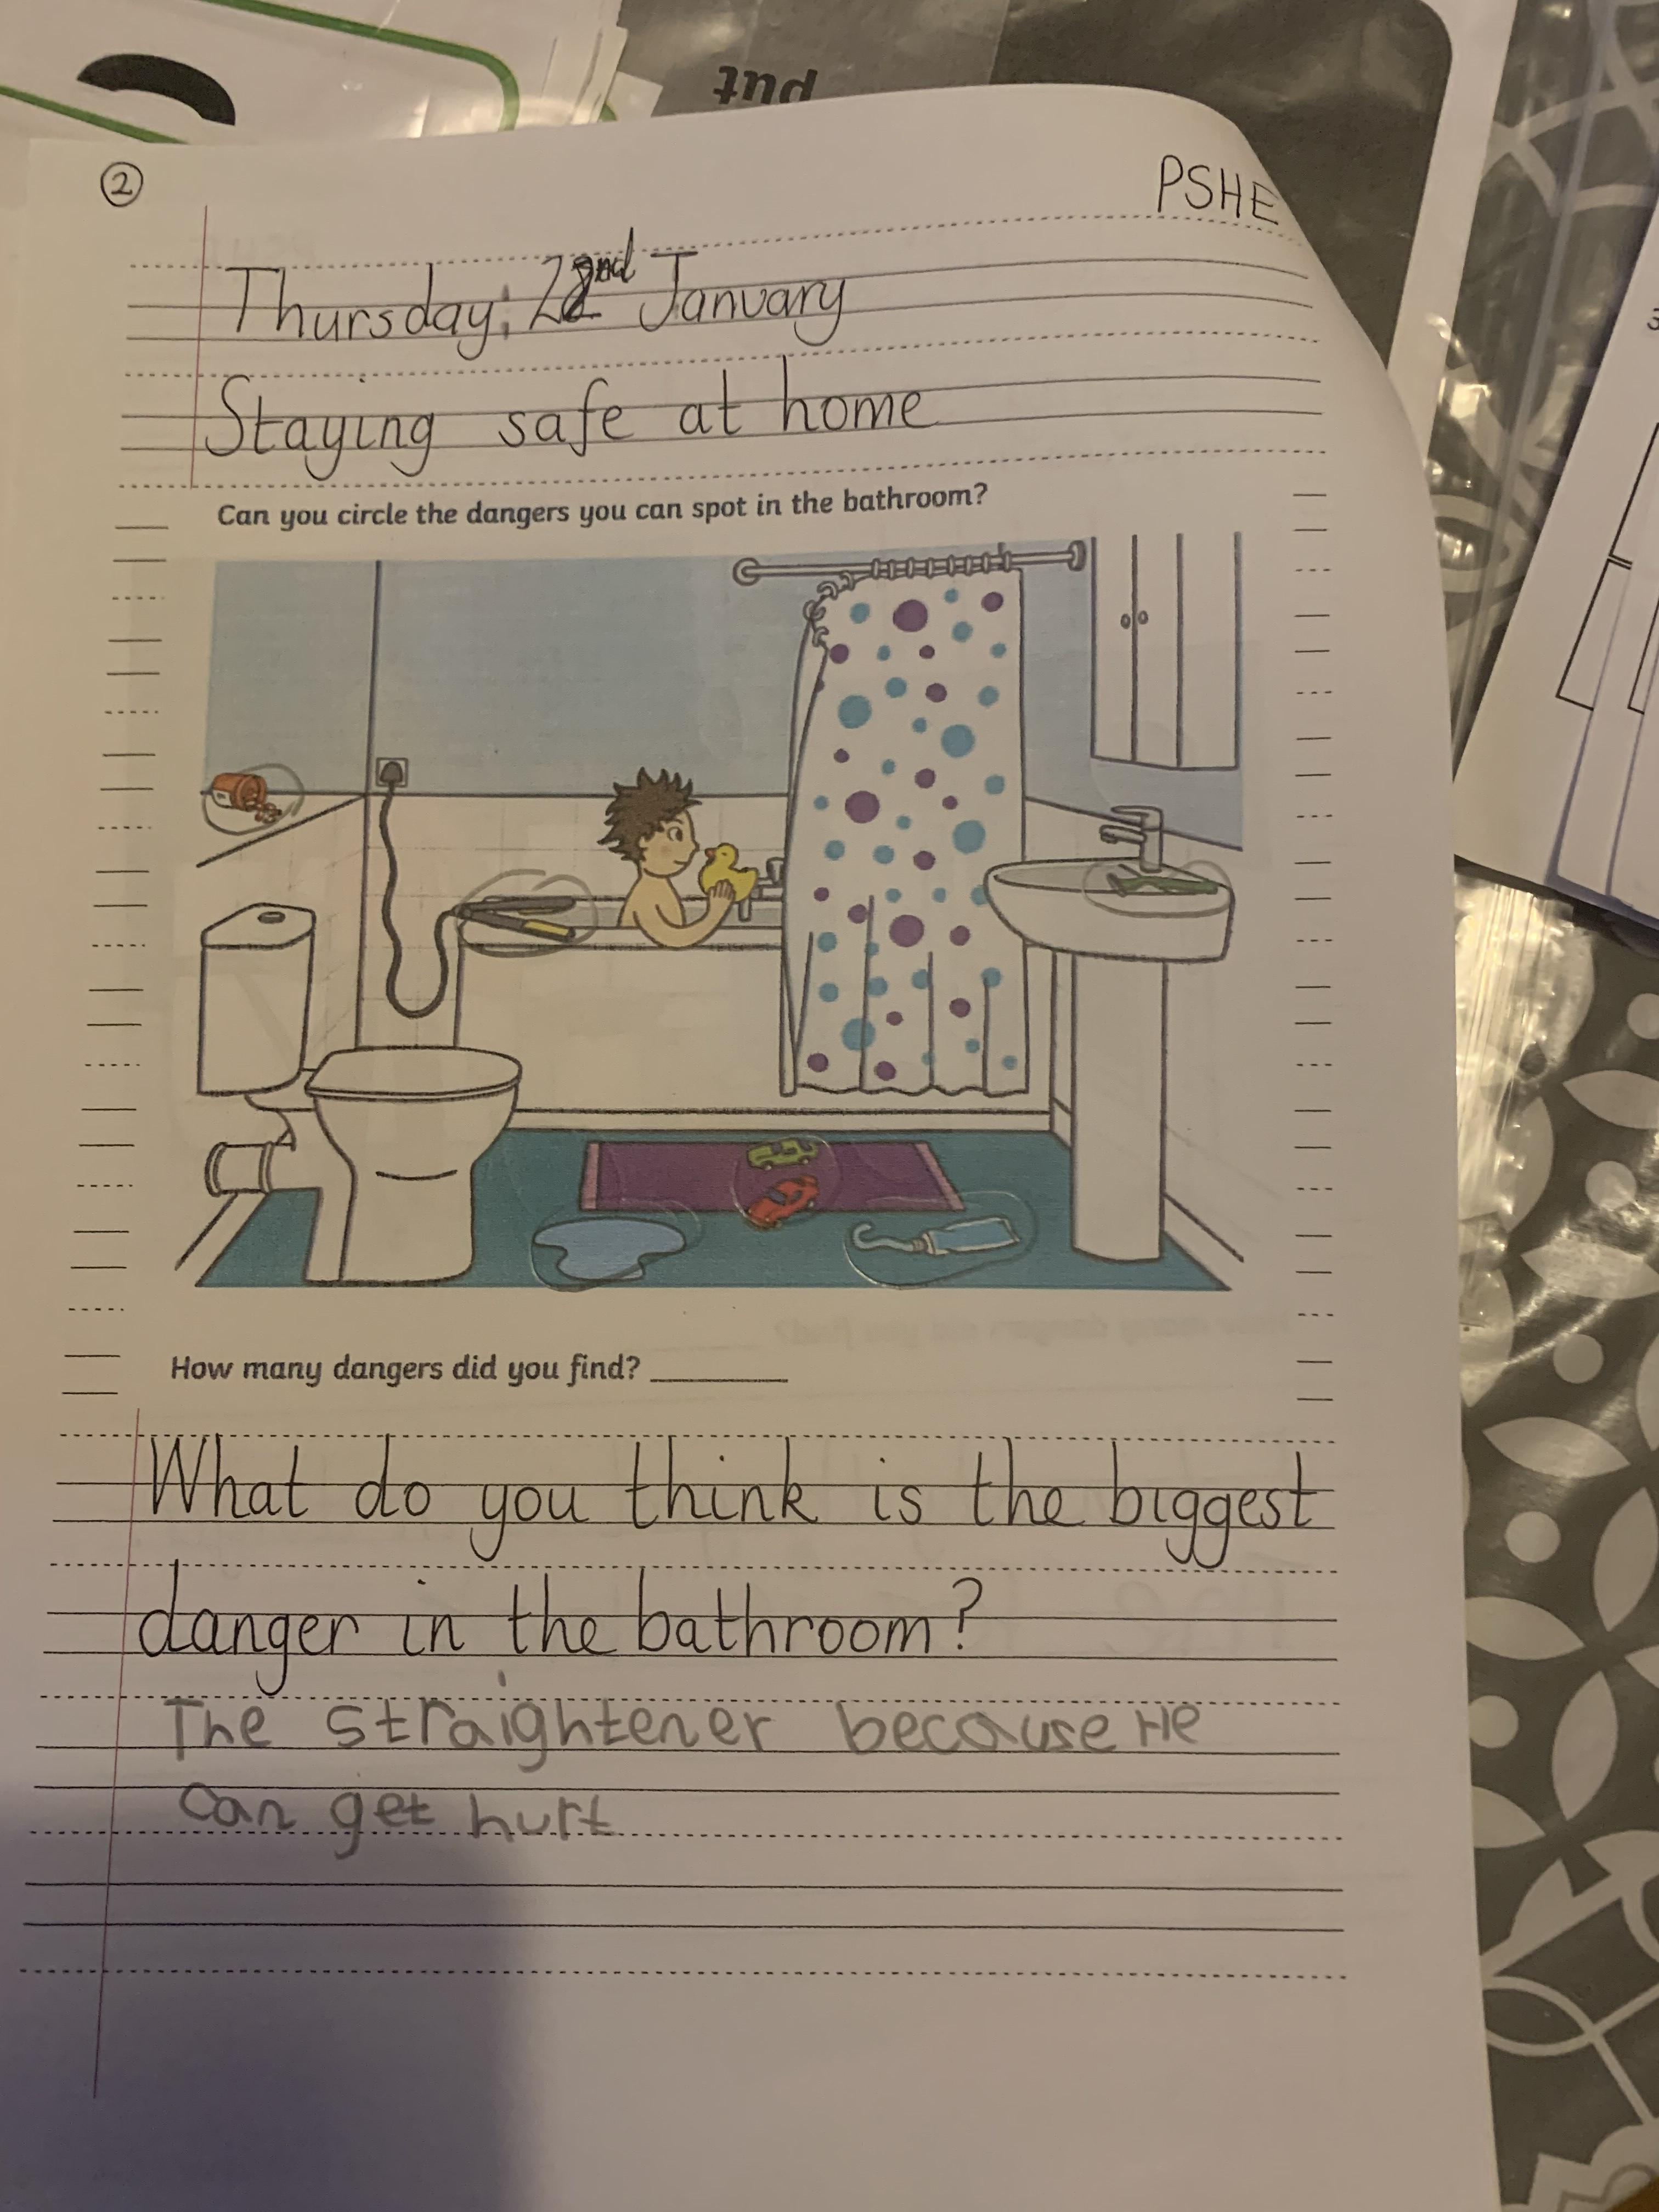 put
2
PSHE
Thursday, 22nd January
Staying safe at home
Can you circle the dangers you can spot in the bathroom?
How many dangers did you find? ________
What do you think is the biggest
danger in the bathroom?
The straightener because He
can get hurt